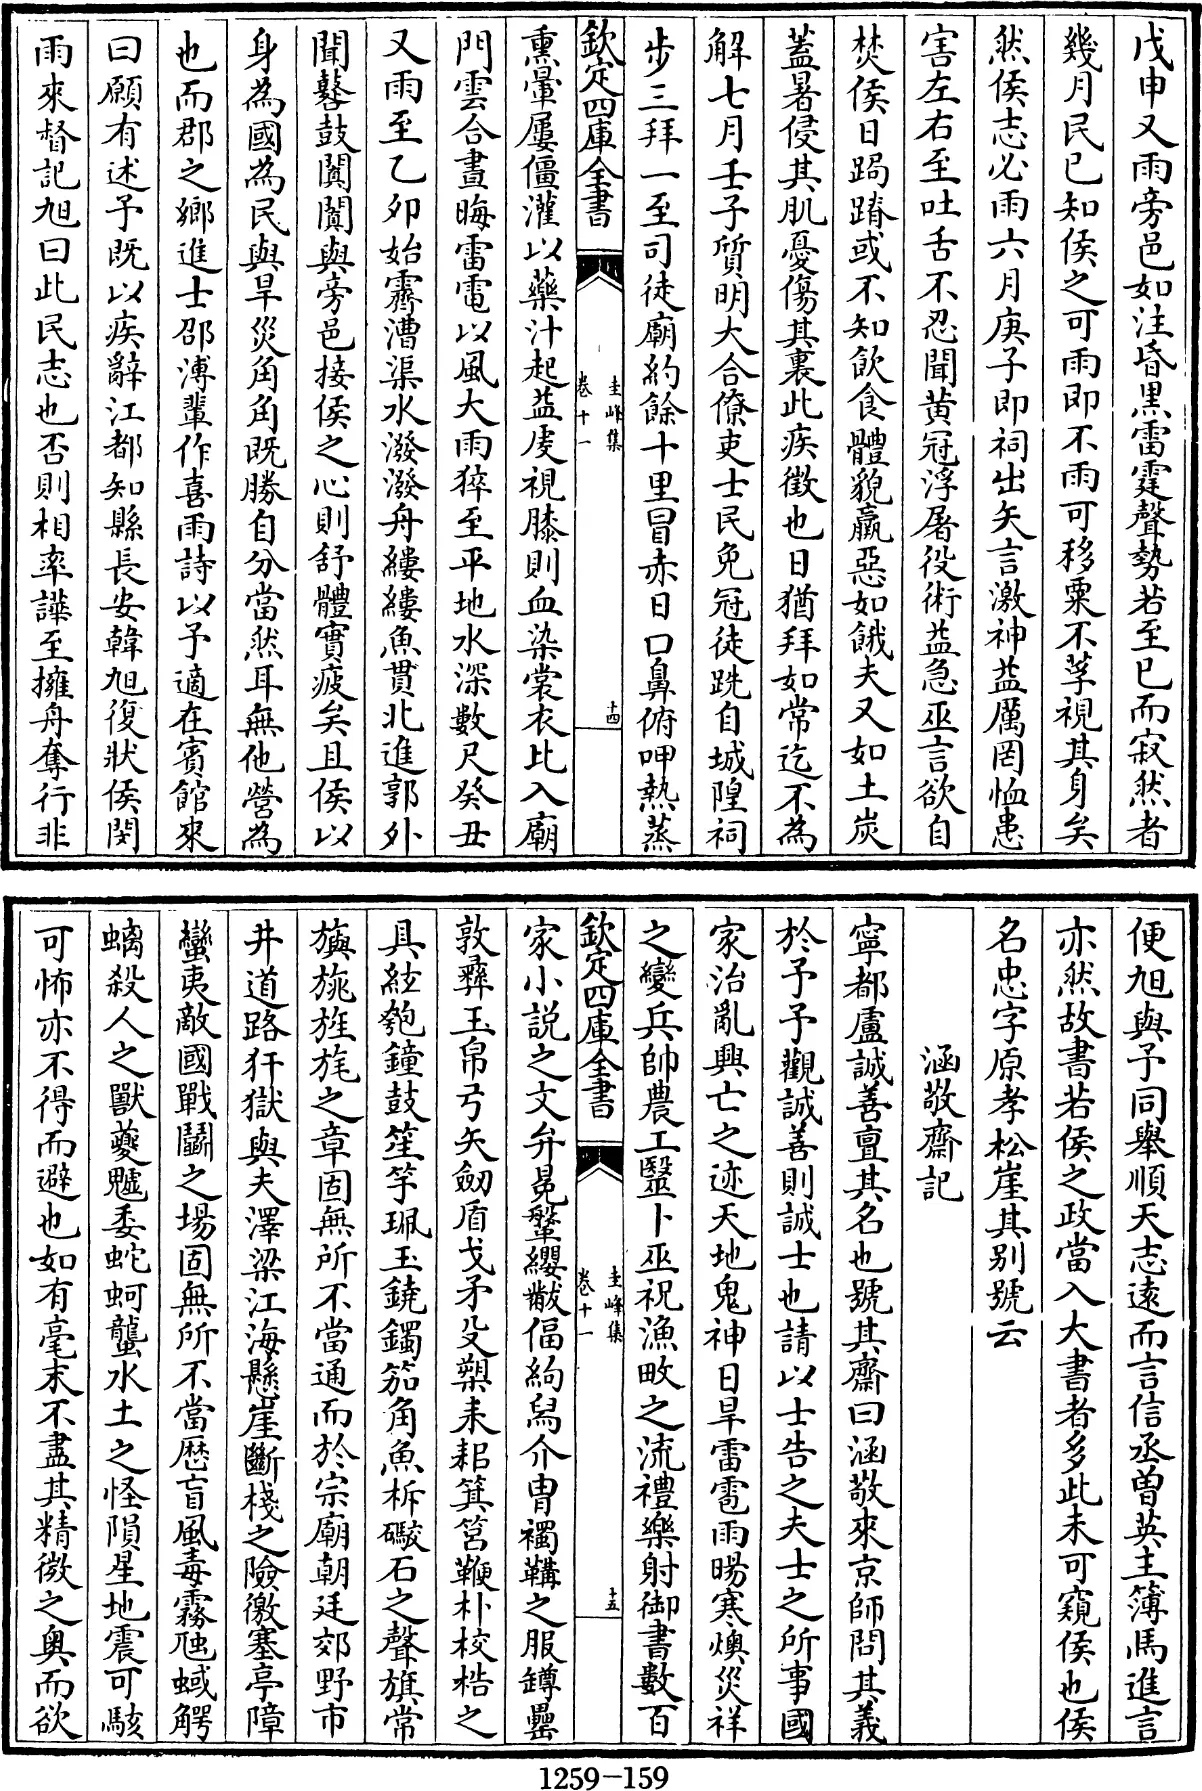 戊申又雨旁邑如注昏黒雷霆聲勢若至已而寂然者
幾月民已知侯之可雨即不雨可移粟不莩視其身矣
然侯志必雨六月庚子即祠出矢言激神益厲罔恤患
害左右至吐舌不忍聞黄冠浮屠役術益急巫言欲自
焚侯日跼蹐或不知飲食體貌羸惡如餓夫又如土炭
蓋暑侵其肌憂傷其裏此疾徴也日猶拜如常迄不為
解七月壬子質明大合僚吏士民免冠徒跣自城隍祠
步三拜一至司徒廟約餘十里冒赤日口鼻俯呷熱蒸
欽定四庫全書
圭峰集
卷十一
十四
熏暈屢僵灌以藥汁起益虔視膝則血染裳衣比入廟
門雲合晝晦雷電以風大雨猝至平地水深數尺癸丑
又雨至乙卯始霽漕渠水潑潑舟縷縷魚貫北進郭外
聞鼛鼓闐闐與旁邑接侯之心則舒體實疲矣且侯以
身為國為民與旱災角角既勝自分當然耳無他營為
也而郡之鄉進士邵溥輩作喜雨詩以予適在賓館來
曰願有述予既以疾辭江都知縣長安韓旭復狀侯閔
雨來督記旭曰此民志也否則相率譁至擁舟奪行非
便旭與予同舉順天志逺而言信丞曽英主簿馬進言
亦然故書若侯之政當入大書者多此未可窺侯也侯
名忠字原孝松崖其别號云
涵敬齋記
寧都盧誠善亶其名也號其齋曰涵敬來京師問其義
於予予觀誠善則誠士也請以士告之夫士之所事國
家治亂興亡之迹天地鬼神日旱雷雹雨暘寒燠災祥
之變兵帥農工毉卜巫祝漁畋之流禮樂射御書數百
欽定四庫全書
圭峰集
卷十一
十五
家小説之文弁冕鞶纓黻偪絇舄介胄襡鞲之服罇罍
敦彞玉帛弓矢劒盾戈矛殳槊耒耜箕筥鞭朴校梏之
具紘匏鐘鼓笙竽珮玉鐃鐲笳角魚柝礮石之聲旗常
旟旐旌旄之章固無所不當通而於宗廟朝廷郊野市
井道路犴獄與夫澤梁江海懸崖斷棧之險徼塞亭障
蠻夷敵國戰鬭之場固無所不當歴盲風毒霧虺蜮鰐
螭殺人之獸夔魖委蛇蚵蠪水土之怪隕星地震可駭
可怖亦不得而避也如有毫末不盡其精微之奥而欲
1259-159